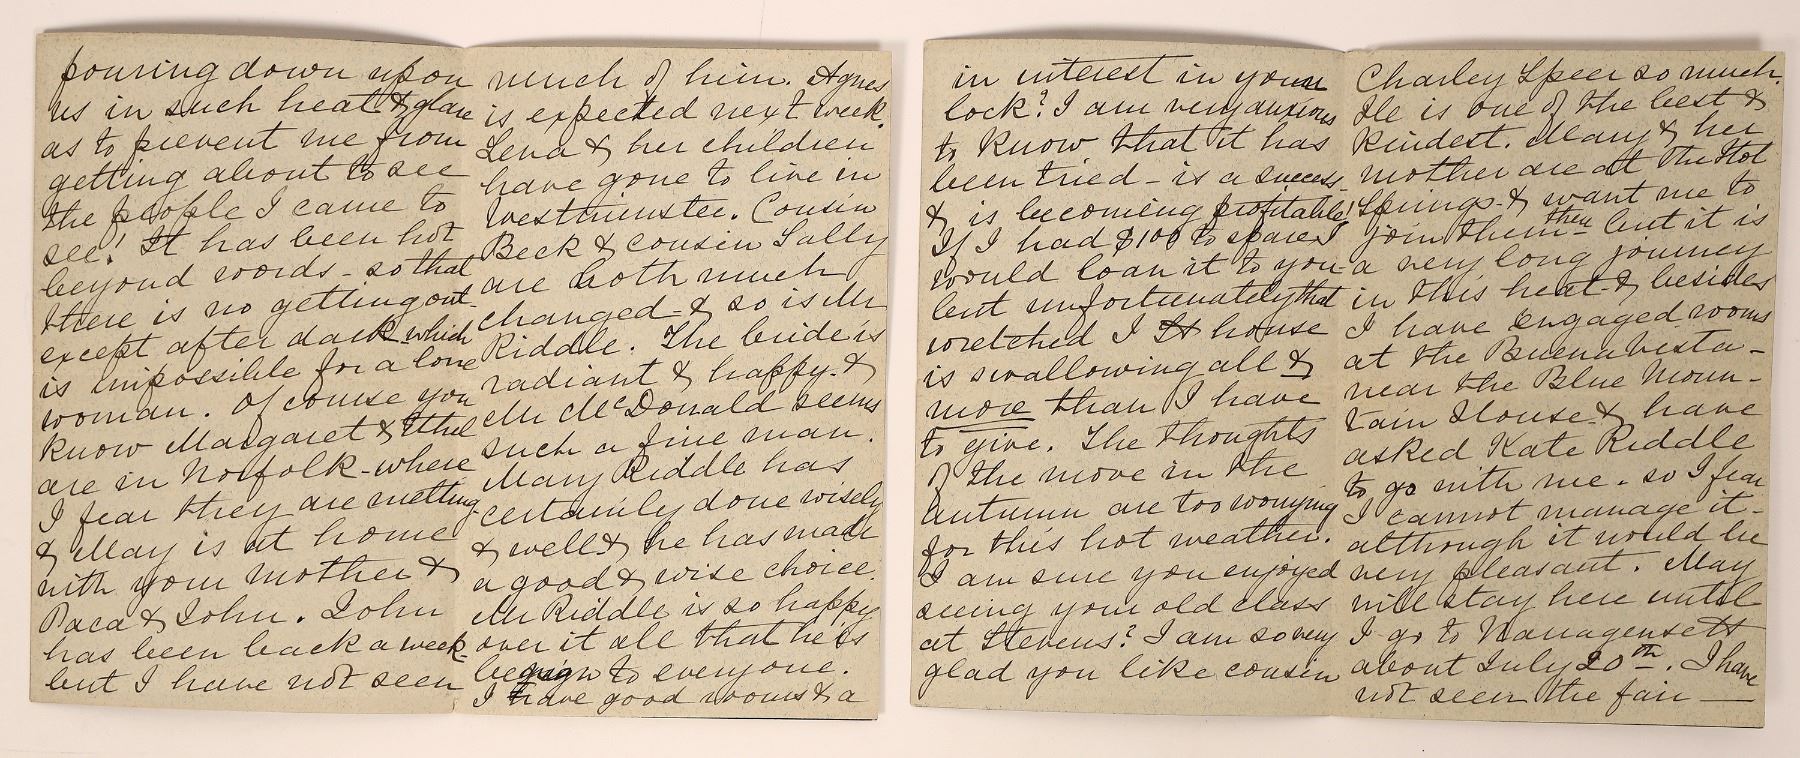 pouring down upon
us in such heat & glare
as to prevent me from
getting about to see
the people I came to
see! It has been hot
beyond words - so that
there is no getting out
except after dark - which
is impossible for a lone
woman. Of course you
know Margaret & Ethel
are in Norfolk - where
I fear they are melting
& May is at home
with your mother &
Paca & John. John
has been back a week -
but I have not seen
much of him. Agnes
is expected next week.
Lena & her children
have gone to live in
Westminster. Cousin
Beck & cousin Sally
are both much
changed - & so is Mr
Riddle. The bride is
radiant & happy - &
Mr McDonald seems
such a fine man.
Mary Riddle has
certainly done wisely
& well & he has made
a good & wise choice.
Mr Riddle is so happy
over it all that he is
benign to everyone.
I have good rooms & a
in interest in your
lock? I am very anxious
to know that it has
been tried - is a success -
& is becoming profitable!
If I had $100 to spare I
would loan it to you -
but unfortunately that
wretched I St house
is swallowing all &
more than I have
to give. The thoughts
of the move in the
Autumn are too worrying
for this hot weather.
I am sure you enjoyed
seeing your old class
at Stevens? I am so very
glad you like cousin
Charley Speer so much.
He is one of the best &
kindest. Mary & her
mother are at the Hot
Springs - & want me to
join them then - but it is
a very long journey
in this heat - & besides
I have engaged rooms
at the Buena Vista -
near the Blue Moun-
tain House & have
asked Kate Riddle
to go with me - so I fear
I cannot manage it -
although it would be
very pleasant. May
will stay here until
I go to Narragensett
about July 20th. I have
not seen the fair —